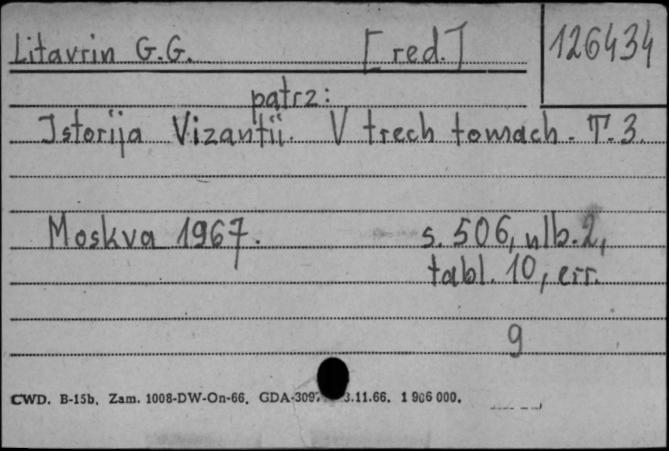 Litavrin G.G. [red.] 126434
patrz:
Istorija Vizantii. V trech tomach. T. 3.
Moskva 1967. s. 506, nlb. 2,
tabl. 10, err.
9
CWD. B-15b. Zam. 1008-DW-On-66. GDA-309 3.11.66. 1 906 000.